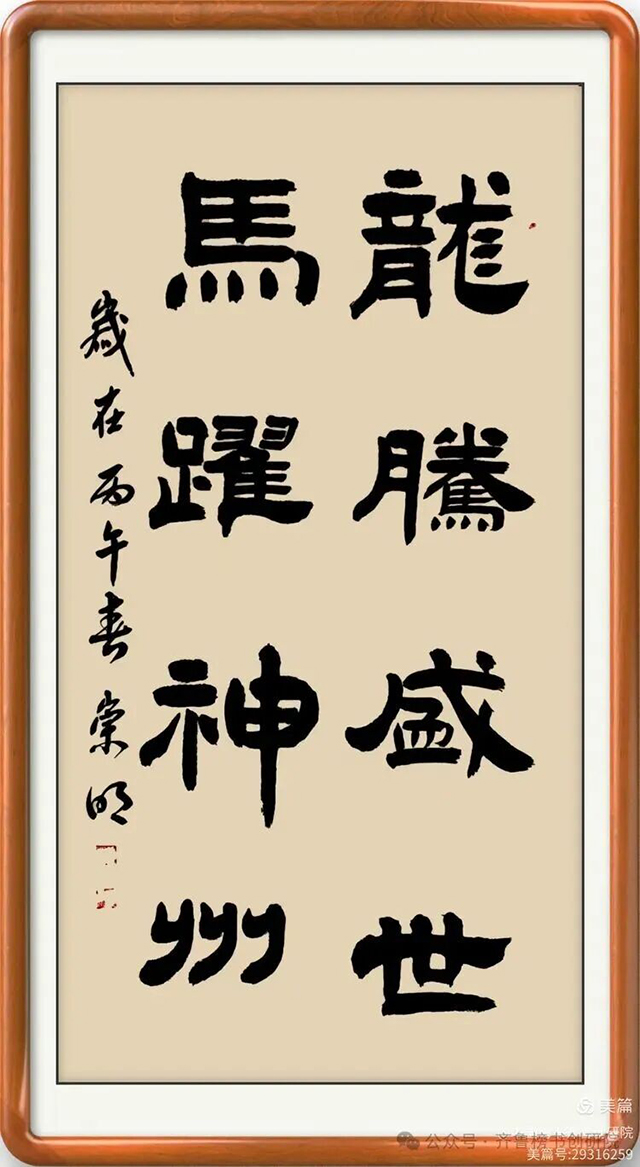 龍騰盛世
馬躍神州
歲在丙午春崇明
美篇
公众号·齐鲁榜书创研院
美篇号:29316259